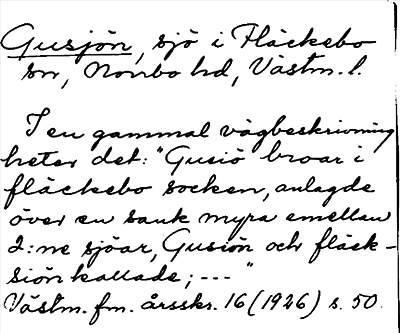 Gusjön, sjö i Fläckebo
sn, Norrbo hd, Västm. l.
I en gammal vägbeskrivning
heter det: "Gusiö broar i
fläckebo socken, anlagde
över en sank myra emellan
2:ne sjöar, Gusiön och fläck-
siön kallade; --- "
Västm. fm. årsskr. 16 (1926) s. 50.